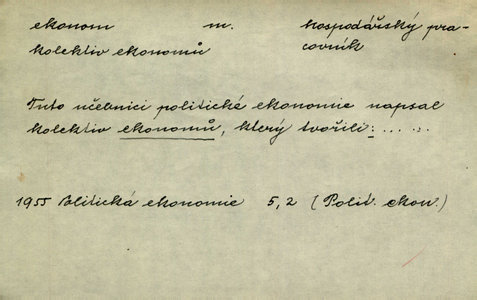 ekonom m. hospodářský pra-
kolektiv ekonomů covník
Tuto učebnici politické ekonomie napsal
kolektiv ekonomů, který tvořili: . . . . .
1955 Politická ekonomie 5,2 (Polit. ekon.)